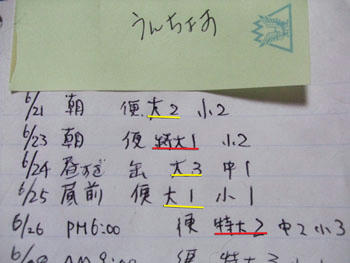 うんちょす
6/21 朝 便 大2 小2
6/23 朝 便 特大1 小2
6/24 昼すぎ 缶 大3 中1
6/25 昼前 便 大1 小1
6/26 PM6:00 便 特大2 中2 小3
便 特大